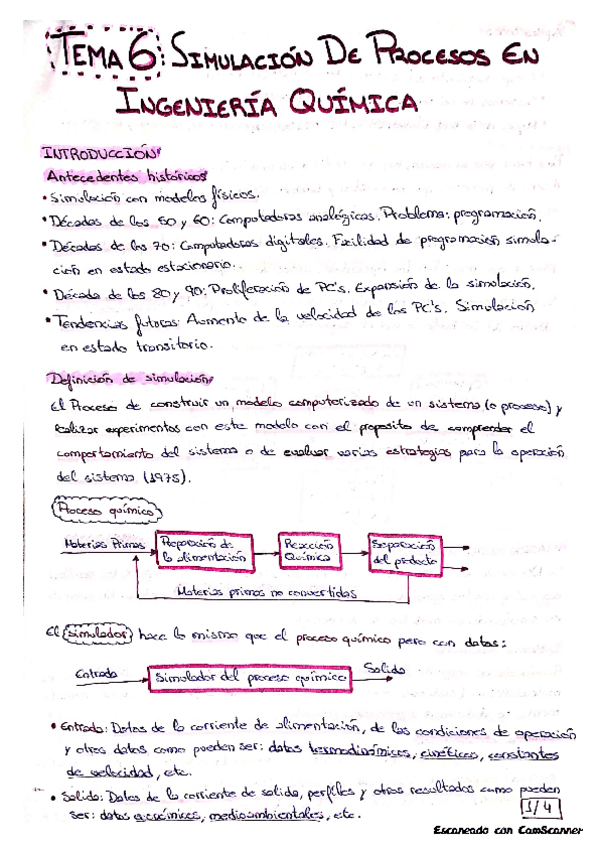 TEMA 6: SIMULACIÓN DE PROCESOS EN
INGENIERÍA QUÍMICA
INTRODUCCIÓN
Antecedentes históricos
• Simulación con modelos físicos.
• Décadas de los 50 y 60: Computadoras analógicas. Problema: programación.
• Décadas de los 70: Computadoras digitales. Facilidad de programación simula-
ción en estado estacionario.
• Década de los 80 y 90: Proliferación de PC's. Expansión de la simulación.
• Tendencias futuras: Aumento de la velocidad de los PC's. Simulación
en estado transitorio.
Definición de simulación
El Proceso de construir un modelo computarizado de un sistema (o proceso) y
realizar experimentos con este modelo con el proposito de comprender el
comportamiento del sistema o de evaluar varias estrategias para la operación
del sistema (1975).
Proceso químico
Materias Primas
Preparación de
la alimentación
Reacción
Química
Separación
del producto
Materias primas no convertidas
El simulador hace lo mismo que el proceso químico pero con datos:
Entrada
Simulador del proceso químico
Salida
• Entrada: Datos de la corriente de alimentación, de las condiciones de operación
y otros datos como pueden ser: datos termodinámicos, cinéticos, constantes
de velocidad, etc.
• Salida: Datos de la corriente de salida, perfiles y otros resultados como pueden
ser: datos económicos, medioambientales, etc.
1/4
Escaneado con CamScanner